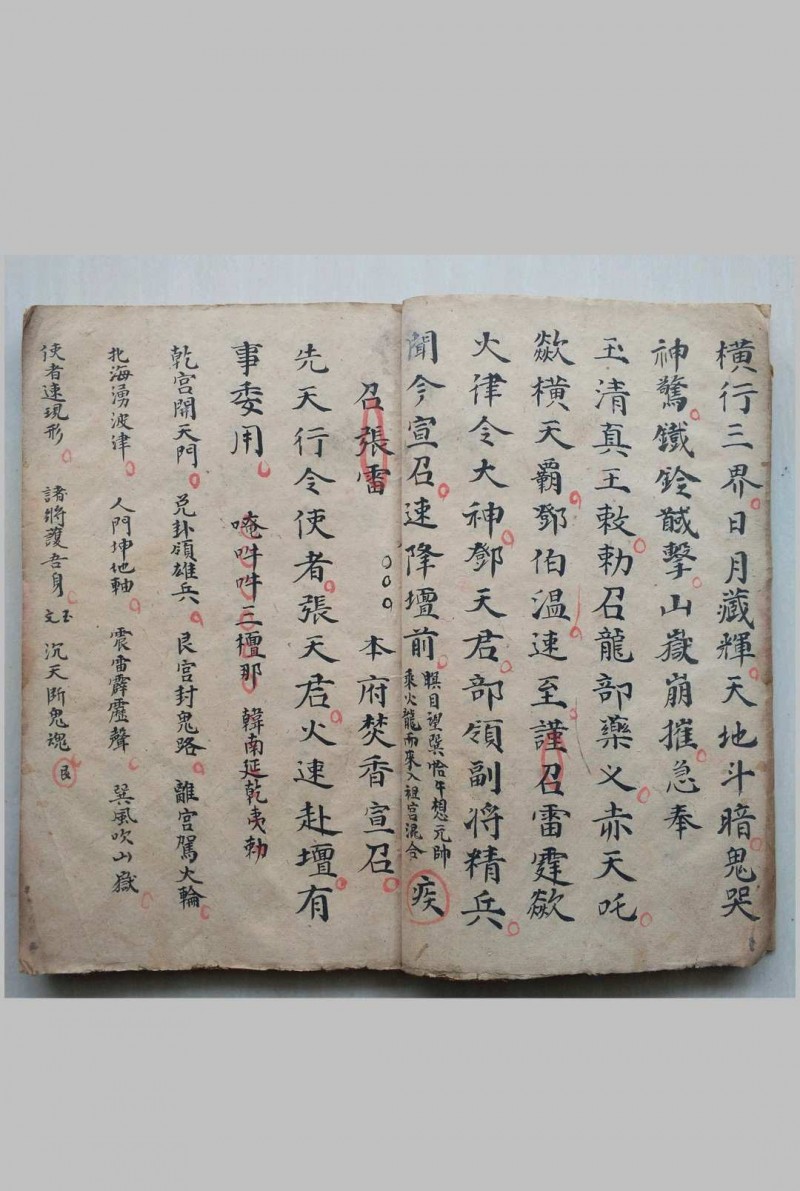 橫行三界日月藏輝天地斗暗鬼哭
神驚鐵鈴馘擊山嶽崩摧急奉
玉清真王敕勅召龍部藥义赤天吒
歘橫天霸鄧伯溫速至謹召雷霆歘
火律令大神鄧天君部領副將精兵
聞今宣召速降壇前
瞑目望巽恰午想元帥
乘火龍而來入祖宮混合
疾
召張雷
本府焚香宣召
先天行令使者張天君火速赴壇有
事委用 唵吽吽三檀那 韓南延乾夷勅
乾宮開天門 兑卦領雄兵 艮宮封鬼路 離宮駕火輪
北海湧波律 人門坤地軸 震雷霹靂聲 巽風吹山嶽
使者速現形 諸將護吾身 又玉 沉天斷鬼魂